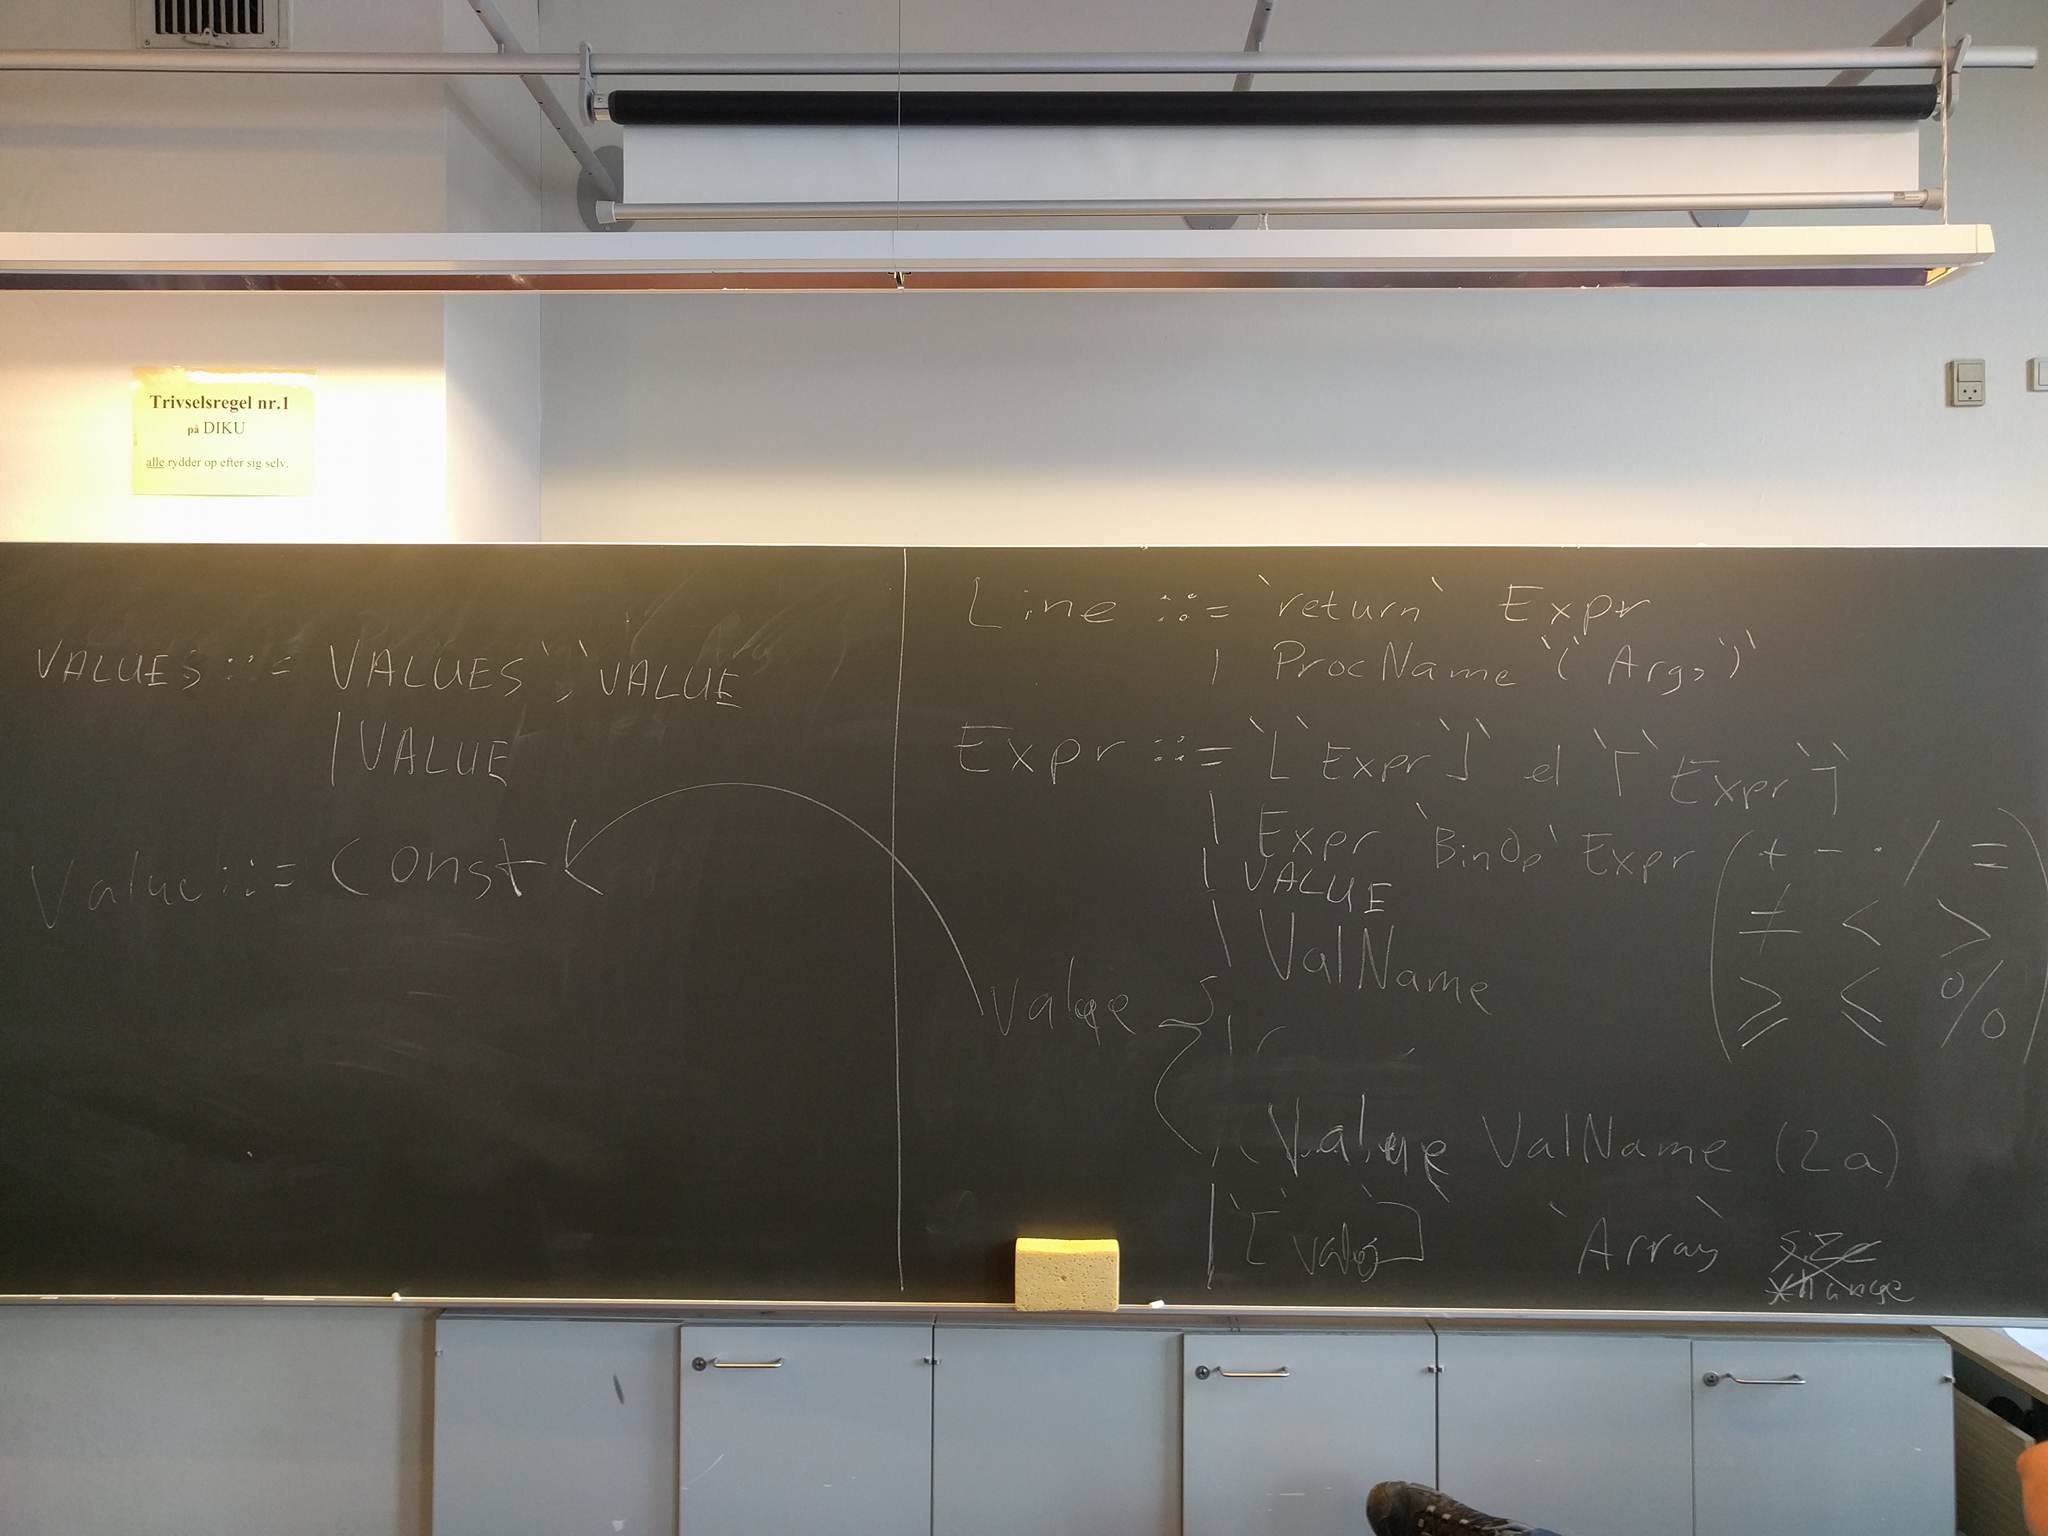 Trivselsregel nr.1
på DIKU
alle rydder op efter sig selv.
VALUES ::= VALUES `,` VALUE
| VALUE
Value ::= Const
Line ::= `return` Expr
| ProcName `(` Args `)`
Expr ::= `⌊` Expr `⌋` el `⌈` Expr `⌉`
| Expr `BinOp` Expr ( + - · / =
≠ < >
≥ ≤ % )
| VALUE
| ValName
Value
Value ValName (2a)
| `[` `]` `Array` size
change